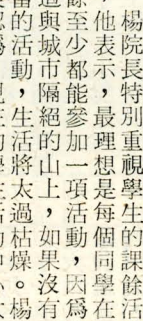 楊院長特別重視學生的課餘活
，他表示，最理想是每個同學在
餘至少都能參加一項活動，因爲
道與城市隔絕的山上，如果沒有
的活動，生活將太過枯燥。楊